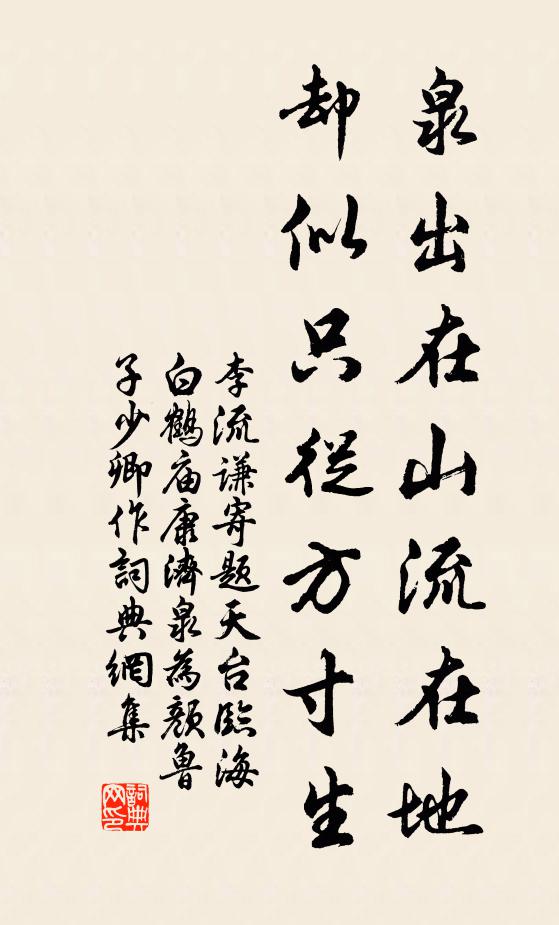 泉出在山流在地
却似只從方寸生
李流謙寄題天台臨海
白鶴庙康濟泉為顏魯
子少卿作詞典網集
詞典
网印